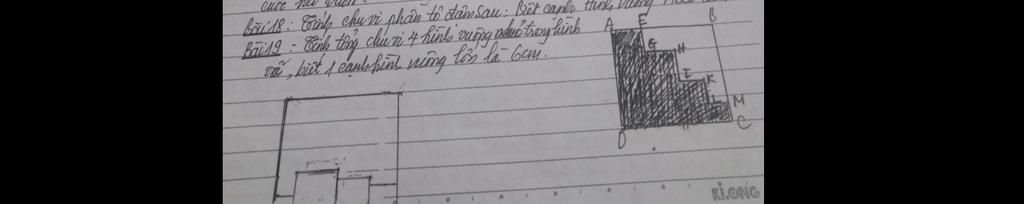 Bài 18: Tính chu vi phần tô đậm sau. Biết cạnh hình vuông
Bài 19: Tính tổng chu vi 4 hình vuông nhỏ trong hình
vẽ, biết 1 cạnh hình vuông lớn là 6cm.
A E B
G H
I K
L M
D C
KLONG